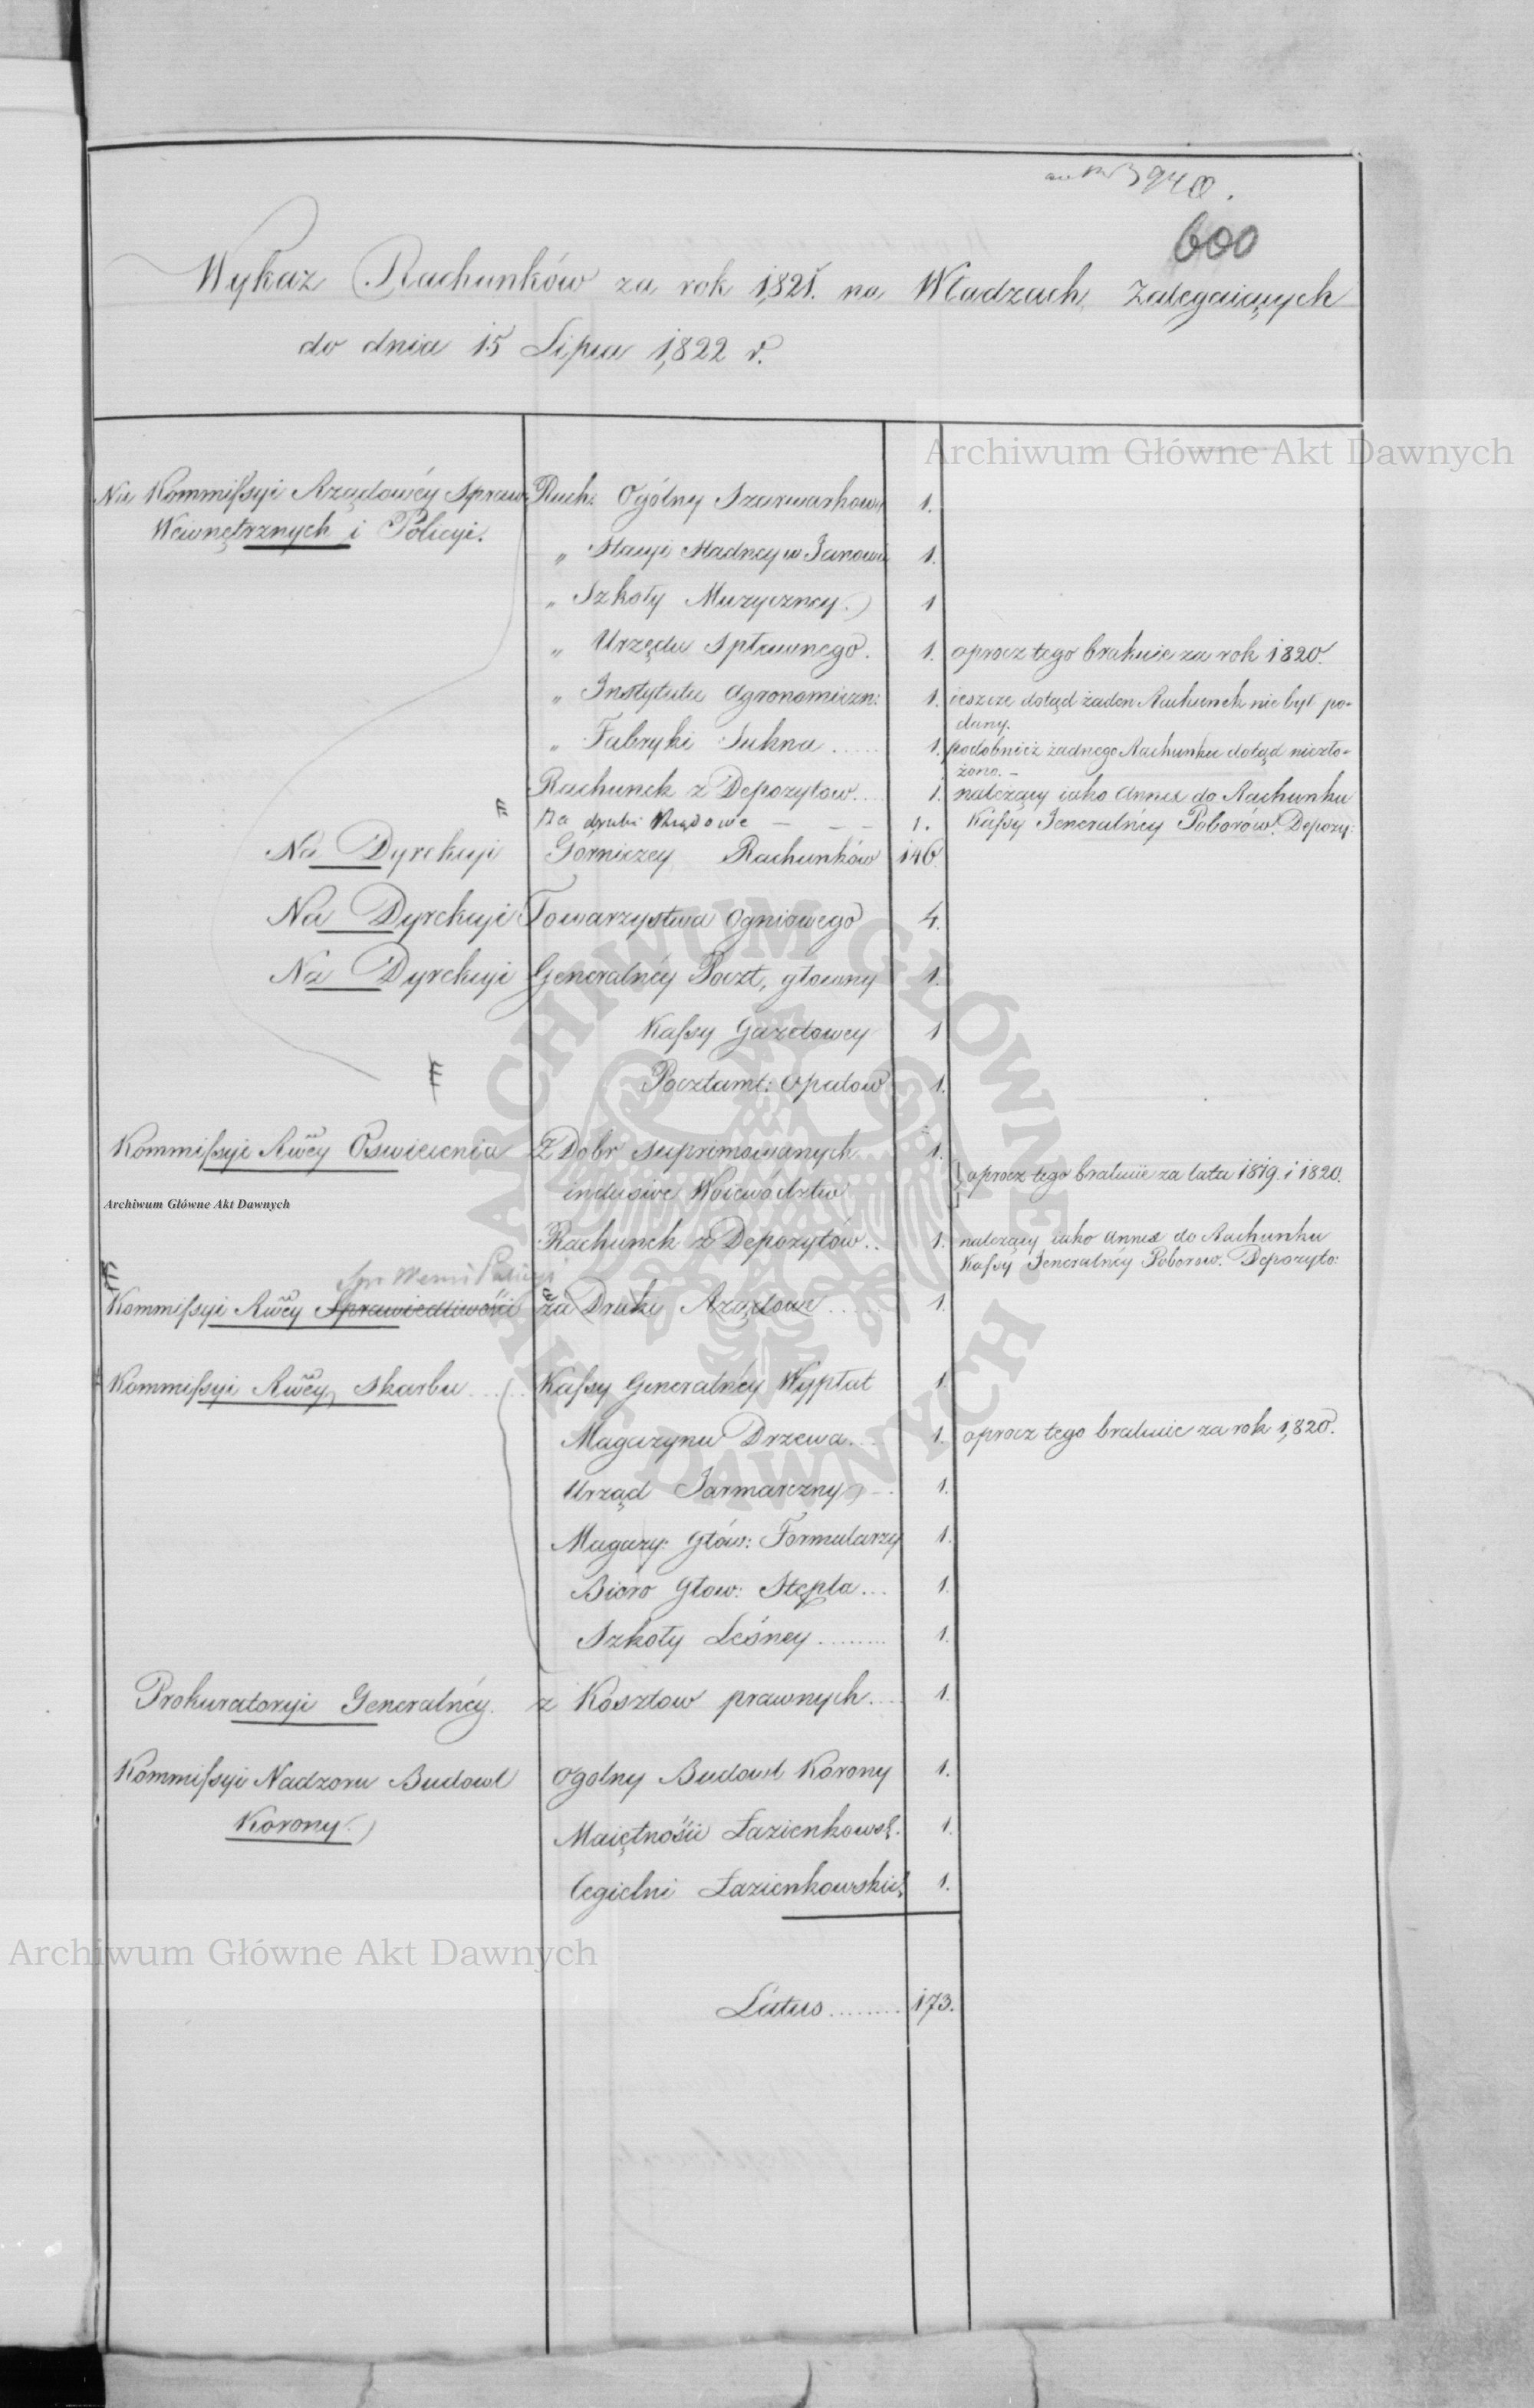 ad Nr 3940.
600
Wykaz Rachunków za rok 1821. na Władzach zalegaiących
do dnia 15 Lipca 1,822 r.
Archiwum Główne Akt Dawnych
Na Kommissyi Rządowéy Spraw Rach: Ogólny Szarwarkowy 1.
Wewnętrznych i Policyi.
„ Stacyi Stadney w Janowie 1.
„ Szkoły Muzyczney 1
„ Urzędu Spławnego. 1. oprocz tego brakuie za rok 1820.
„ Instytutu Agronomiczn: 1. ieszcze dotąd żaden Rachunek nie był po-
dany.
„ Fabryki Sukna ..... 1. podobnież żadnego Rachunku dotąd niezło-
żono. -
Rachunek z Depozytow.... 1. należący iako Annex do Rachunku
Za druki Rządowe - - - 1. Kassy Jeneralnéy Poborów: Depozy:
Na Dyrekcyi Gorniczey Rachunków 146.
Na Dyrekcyi Towarzystwa Ogniowego 4.
Na Dyrekcyi Generalnéy Poczt, głowny 1.
Kassy Gazetowey 1
Pocztamt: Opatow 1.
Kommissyi Rwéy Oswiecenia Z Dobr suprimowanych 1.
inclusive Woiewództw oprocz tego brakuie za lata 1819. i 1820.
Archiwum Główne Akt Dawnych
Rachunek z Depozytów.. 1. należący iako Annex do Rachunku
Kassy Jeneralnéy Poborow: Depozyto:
Spr Wewn i Policyi
Kommissyi Rwéy Sprawiedliwości za Druki Rządowe ..... 1.
Kommissyi Rwéy Skarbu ..... Kassy Generalnéy Wypłat 1.
Magazynu Drzewa... 1. oprocz tego brakuie za rok 1,820.
Urząd Jarmarczny 1.
Magazy: Głów: Formularzy 1.
Bióro Głow: Stępla ... 1.
Szkoły Leśney ......... 1.
Prokuratoryi Generalnéy. z Kosztow prawnych.... 1.
Kommissyi Nadzoru Budowl Ogolny Budowl Korony 1.
Korony. Maiętności Łazienkowsk. 1.
Cegielni Łazienkowskich 1.
Archiwum Główne Akt Dawnych
Latus ......... 173.
ARCHIWUM GŁÓWNE AKT DAWNYCH